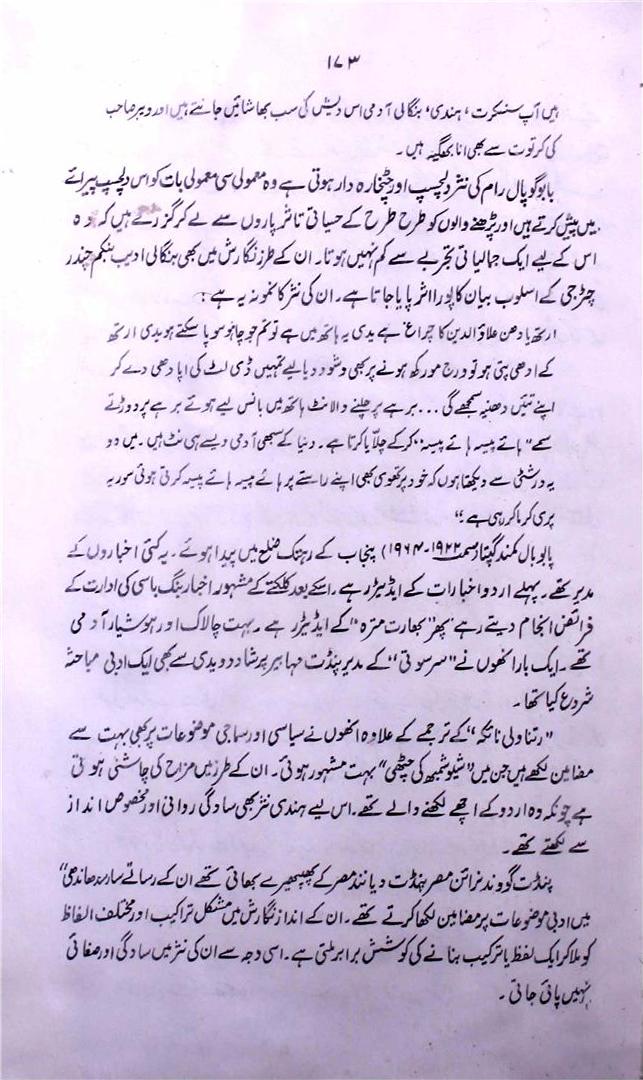 ۱۷۳
ہیں آپ سنسکرت، ہندی، بنگالی آدمی اس دیش کی سب بھاشائیں جانتے ہیں اور ویبر صاحب
کی کرتوت سے بھی انا بھگیہ ہیں۔
بابو گوپال رام کی نثر دلچسپ اور چٹخارہ دار ہوتی ہے وہ معمولی سی معمولی بات کو اس دلچسپ پیرائے
میں پیش کرتے ہیں اور پڑھنے والوں کو طرح طرح کے حسیاتی تاثر پاروں سے لے کر گزرتے ہیں کہ وہ
اس کے لیے ایک جمالیاتی تجربے سے کم نہیں ہوتا۔ ان کے طرز نگارش میں بھی بنگالی ادیب بنکم چندر
چٹرجی کے اسلوب بیان کا پورا اثر پایا جاتا ہے۔ ان کی نثر کا نمونہ یہ ہے:
ارتھ یا دھن علاؤ الدین کا چراغ ہے یدی یہ ہاتھ میں ہے تو تم جو چاہو سو پا سکتے ہو یدی ارتھ
کے ادھی پتی ہو تو درج مورکھ ہونے پر بھی وشو ودیالیے تمہیں ڈی لٹ کی اپادھی دے کر
اپنے تئیں دھنیہ سمجھے گی ... برہے پر چلنے والا نٹ ہاتھ میں بانس لیے ہوئے برہے پر دوڑتے
سمے "ہائے پیسہ ہائے پیسہ" کر کے چلایا کرتا ہے۔ دنیا کے سبھی آدمی ویسے ہی نٹ ہیں۔ میں دو
یہ درشٹی سے دیکھتا ہوں کہ خود پرتھوی بھی اپنے راستے پر ہائے پیسہ ہائے پیسہ کرتی ہوئی سوریہ
پری کرما کر رہی ہے"
بابو بال مکند گپتا (سمت ۱۹۲۲-۱۹۶۴) پنجاب کے رہتک ضلع میں پیدا ہوئے۔ یہ کئی اخباروں کے
مدیر تھے۔ پہلے اردو اخبارات کے ایڈیٹر رہے۔ اسکے بعد کلکتے کے مشہور اخبار بنگ باسی کی ادارت کے
فرائض انجام دیتے رہے پھر "بھارت مترہ" کے ایڈیٹر رہے۔ بہت چالاک اور ہوشیار آدمی
تھے۔ ایک بار انھوں نے "سرسوتی" کے مدیر پنڈت مہابیر پرشاد دویدی سے بھی ایک ادبی مباحثہ
شروع کیا تھا۔
"رتناولی ناٹکہ" کے ترجمے کے علاوہ انھوں نے سیاسی اور سماجی موضوعات پر بھی بہت سے
مضامین لکھے ہیں جن میں "شیو شمبھو کی چٹھی" بہت مشہور ہوئی۔ ان کے طرز میں مزاح کی چاشنی ہوتی
ہے چونکہ وہ اردو کے اچھے لکھنے والے تھے۔ اس لیے ہندی نثر بھی سادگی روانی اور مخصوص انداز
سے لکھتے تھے۔
پنڈت گووند نرائن مصر پنڈت دیانند مصر کے پھپھیرے بھائی تھے ان کے رسالے سار سدھاندھی"
میں ادبی موضوعات پر مضامین لکھا کرتے تھے۔ ان کے انداز نگارش میں مشکل تراکیب اور مختلف الفاظ
کو ملا کر ایک لفظ یا ترکیب بنانے کی کوشش برابر ملتی ہے۔ اسی وجہ سے ان کی نثر میں سادگی اور صفائی
نہیں پائی جاتی۔